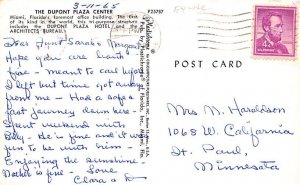 THE DUPONT PLAZA CENTER
P23757
Miami, Florida's foremost office building. The first
of its kind in the world, this tri-purpose structure
includes the DUPONT PLAZA HOTEL and the
ARCHITECTS BUREAU
3-11-65
Dear Aunt Sarah &
Hope you are both
fine - meant to call before
I left but time got away
from me - Had a safe &
fast journey down here -
Spent weekend with
Billy - He is fine and it was
fun to be with him -
Enjoying the sunshine -
Mother is fine - Love
Clara &
POST CARD
4¢
Mrs N. Haroldson
1068 W. California
St. Paul,
Minnesota